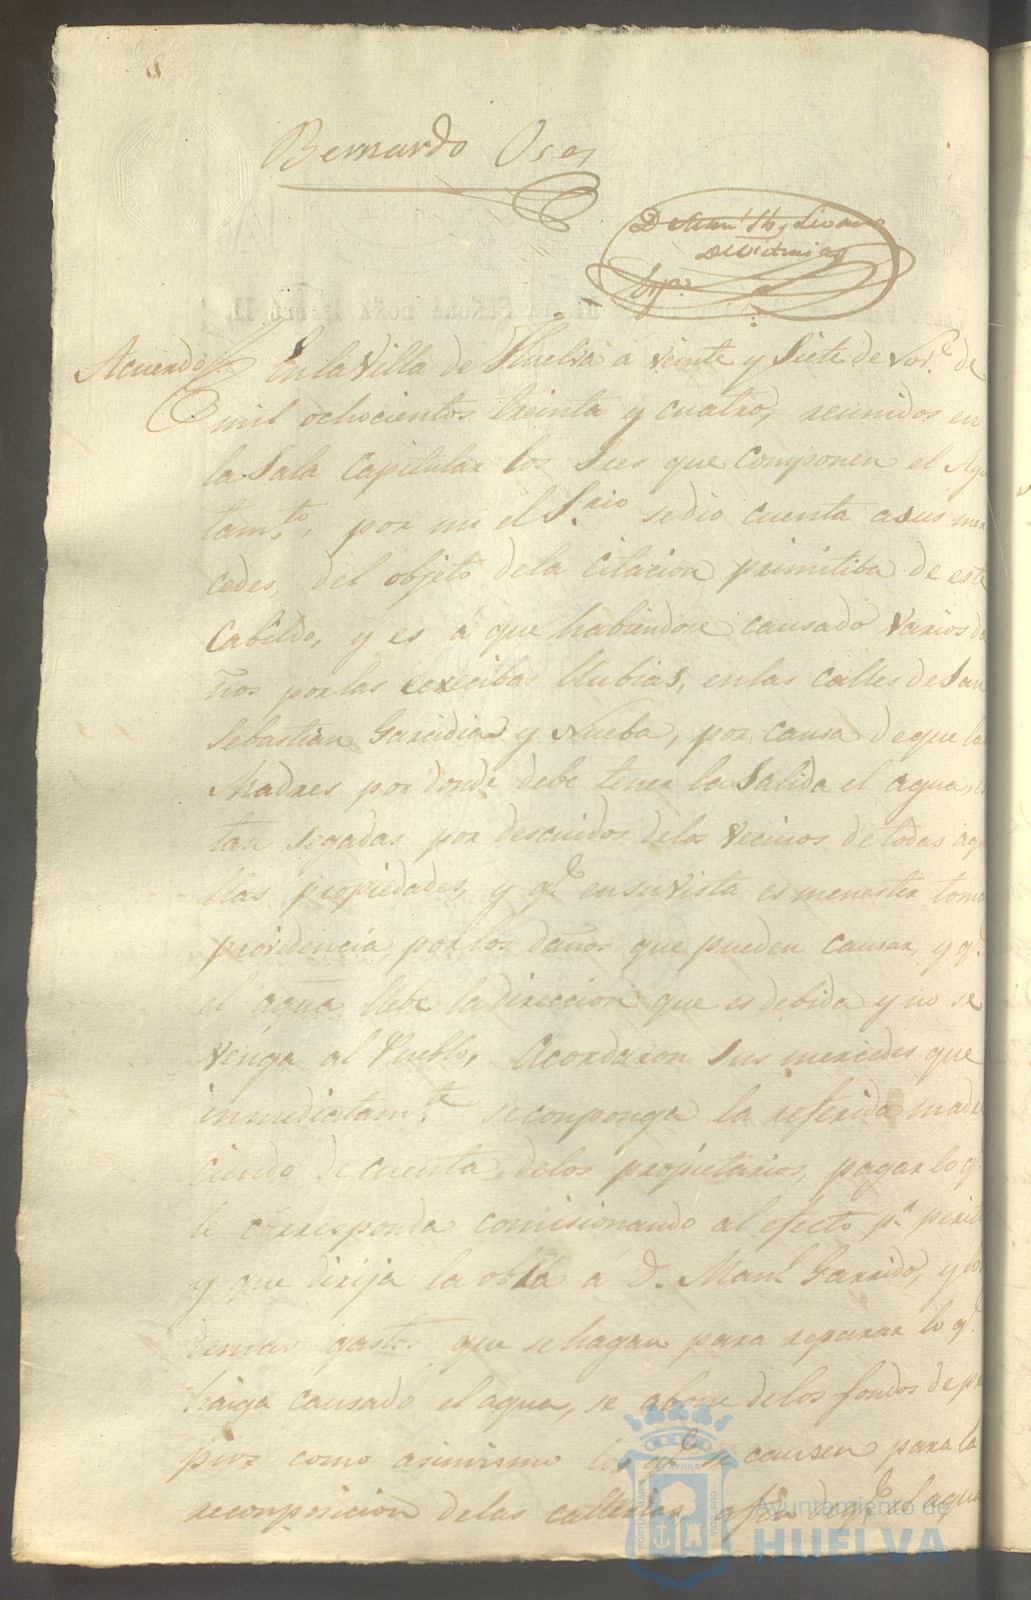 Bernardo Oses
Acuerdo En la Villa de Huelva á veinte y Siete de Nov.e de
mil ochocientos treinta y cuatro, reunidos en
la Sala Capitular los Sres que componen el Ayu
tam.to, por mi el S.rio se dió cuenta a sus mer
cedes, del objeto de la Citacion primitiba de este
Cabildo, y es á que habiendose causado varios da
ños por las excecibas llubias, en las calles de San
Sebastian Garcidias y Nueba, por causa de que las
Madres por donde debe tener la Salida el agua, es
tan segadas por descuidos de los Vecinos de todas aque
llas propiedades, y q.e en su vista es menester tomar
providencia, por los daños que pueden causar, y q.e
el agua llebe la direccion que es debida y no se
venga al Pueblo, Acordaron Sus mercedes que
inmediatam.te se conponga la referida madre
ciendo de cuenta de los propietarios, pagar lo q.e
le corresponda comisionando al efecto p.a perito
y que dirija la obra á D. Man.l Garrido, y los
demas gastos que se hagan para reparar lo q.e
haiga causado el agua, se abone de los fondos de pro
pios como asimismo los q.e se causen para la
recomposicion de las callerias, a fin de q.e el agua
Ayuntamiento de
HUELVA